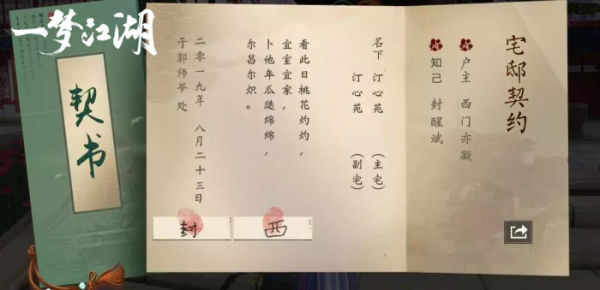 一梦江湖
契书
宅邸契约
户主 西门亦凝
知己 封醒斌
名下 汀心苑 (主宅)
汀心苑 (副宅)
看此日桃花灼灼，
宜室宜家，
卜他年瓜瓞绵绵，
尔昌尔炽。
二零一九年 八月二十三日
于郭师爷处
西
封